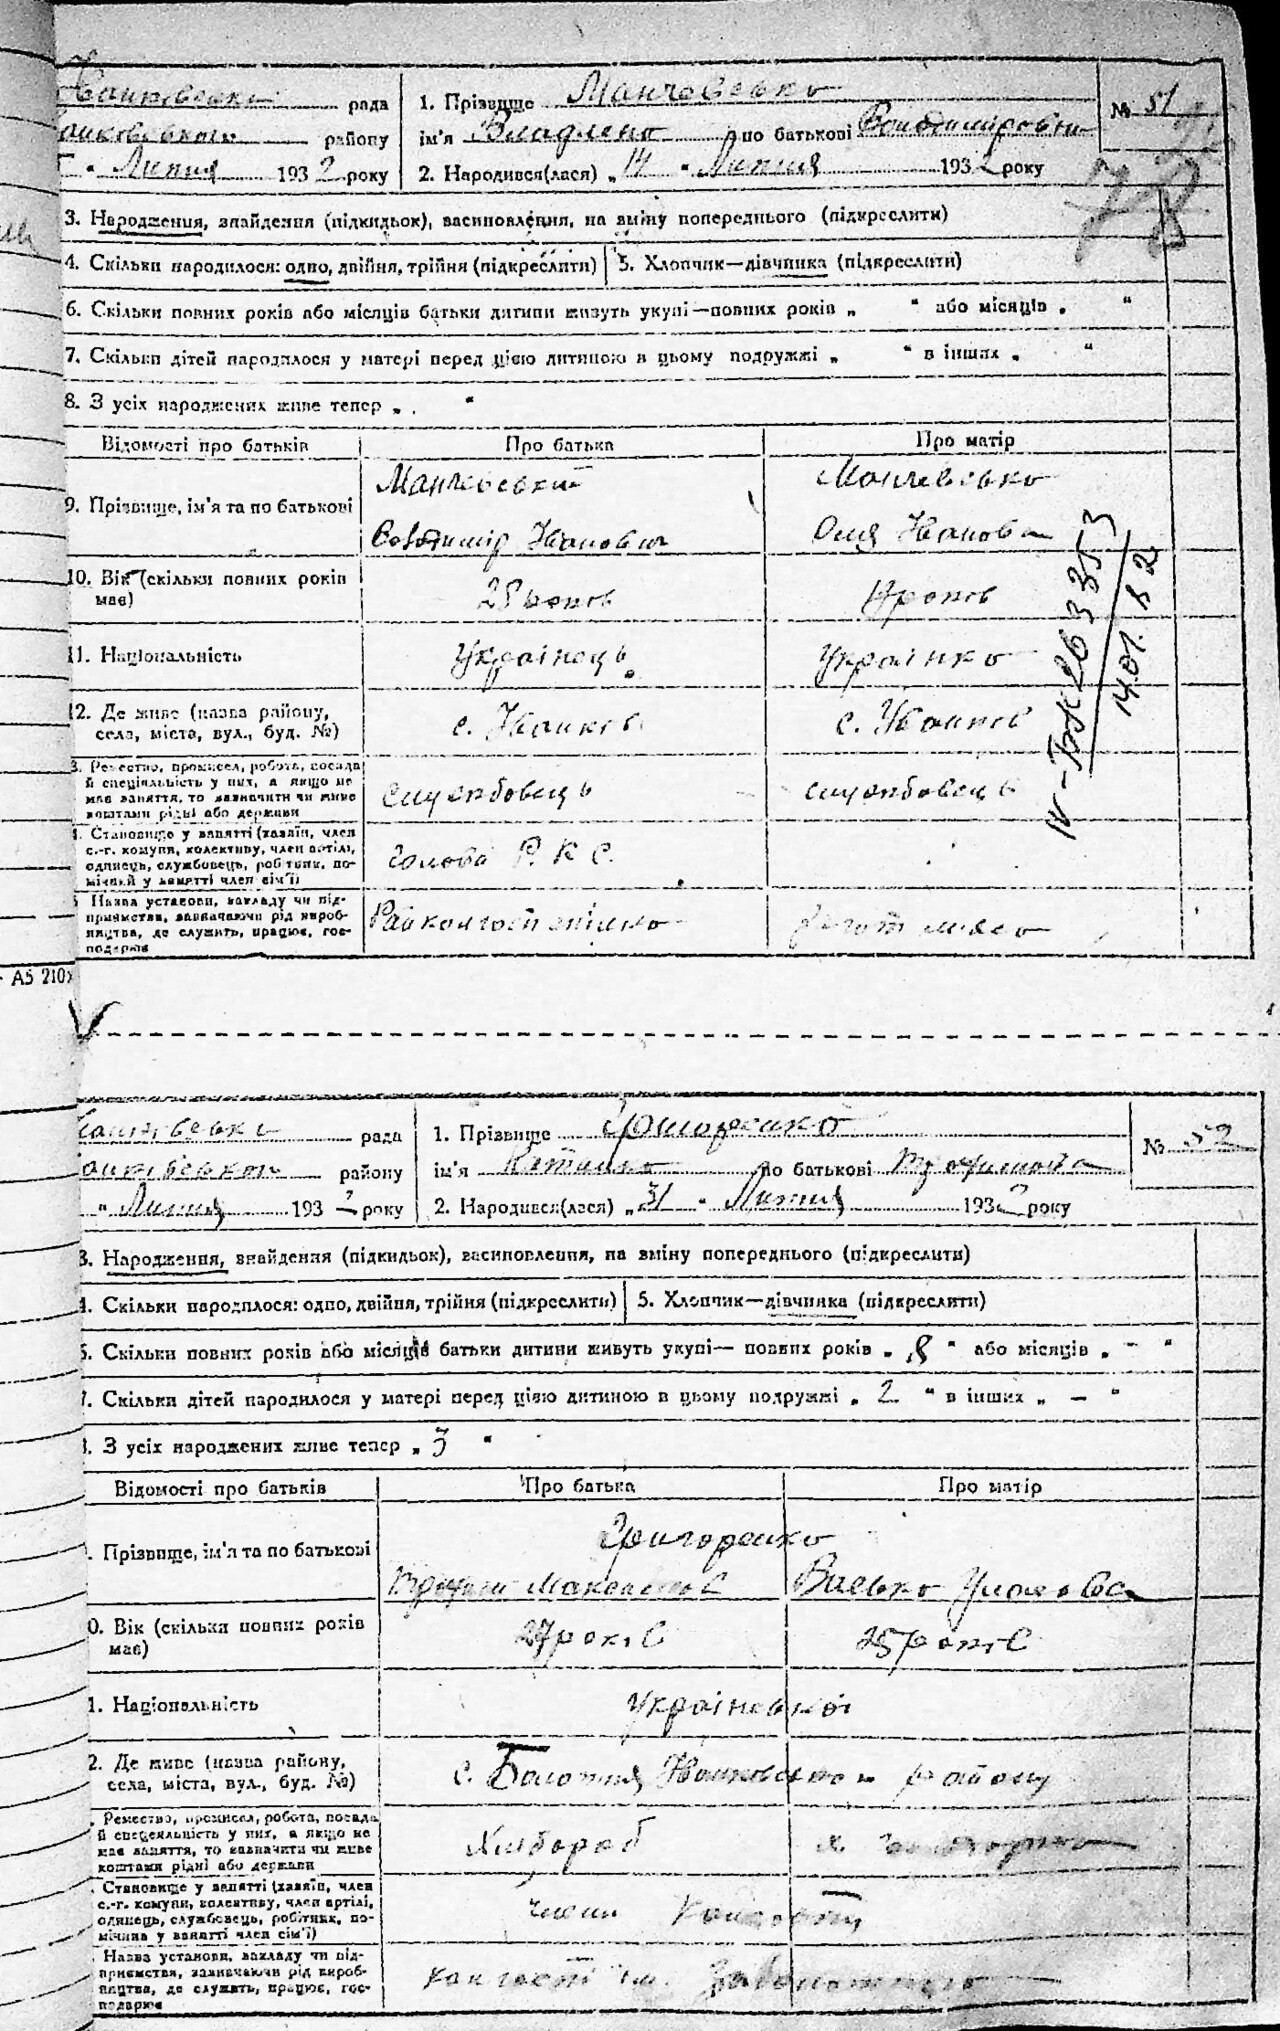 рада
1. Прізвище Манчевсько
№ 51
району
ім'я Владлено по батькові Володимировни
78
" Липня 1932 року
2. Народився(лася) „14 " Липня 1932 року
3. Народження, знайдення (підкидьок), васиновлення, на зміну попереднього (підкреслити)
4. Скільки народилося: одно, двійня, трійня (підкреслити)
5. Хлопчик—дівчинка (підкреслити)
6. Скільки повних років або місяців батьки дитини живуть укупі—повних років „ " або місяців „ "
7. Скільки дітей народилося у матері перед цією дитиною в цьому подружжі „ " в інших „ "
8. З усіх народжених живе тепер „ "
Відомості про батьків
Про батька
Про матір
9. Прізвище, ім'я та по батькові
Манчевський
Манчевсько
Володимир Іванович
Оля Іванова
10. Вік (скільки повних років має)
28 років
років
11. Національність
Українець
Українко
12. Де живе (назва району, села, міста, вул., буд. №)
с. Іванків
с. Іванков
3. Ремество, промисел, робота, посада й спеціяльність у них, а якщо не має заняття, то зазначити чи живе коштами рідні або держави
службовець
службовець
Становище у занятті (хазяїн, член с.-г. комуни, колективу, член артілі, одинець, службовець, робітник, помічний у занятті член сім'ї)
Голова Р. К. С.
Назва установи, закладу чи підприємства, зазначаючи рід виробництва, де служить, працює, господарює
Райколгоспспілко
14.01.82
А5 210х
рада
1. Прізвище Григоренко
№ 52
району
ім'я по батькові Трохимовна
" Липня 1932 року
2. Народився(лася) „31 " Липня 1932 року
3. Народження, знайдення (підкидьок), васиновлення, на зміну попереднього (підкреслити)
4. Скільки народилося: одно, двійня, трійня (підкреслити)
5. Хлопчик—дівчинка (підкреслити)
6. Скільки повних років або місяців батьки дитини живуть укупі— повних років „ 8 " або місяців „ - "
7. Скільки дітей народилося у матері перед цією дитиною в цьому подружжі „ 2 " в інших „ — "
8. З усіх народжених живе тепер „ 3 "
Відомості про батьків
Про батька
Про матір
Прізвище, ім'я та по батькові
Григоренко
Трохим
Васько
0. Вік (скільки повних років має)
27 років
25 років
1. Національність
Українські
2. Де живе (назва району, села, міста, вул., буд. №)
с. Болотня Іванковського району
Ремество, промисел, робота, посада й спеціяльність у них, а якщо не має заняття, то зазначити чи живе коштами рідні або держави
Хлібороб
Становище у занятті (хазяїн, член с.-г. комуни, колективу, член артілі, одинець, службовець, робітник, помічник у занятті член сім'ї)
члени
Назва установи, закладу чи підприємства, зазначаючи рід виробництва, де служать, працює, господарює
колгосп ім.